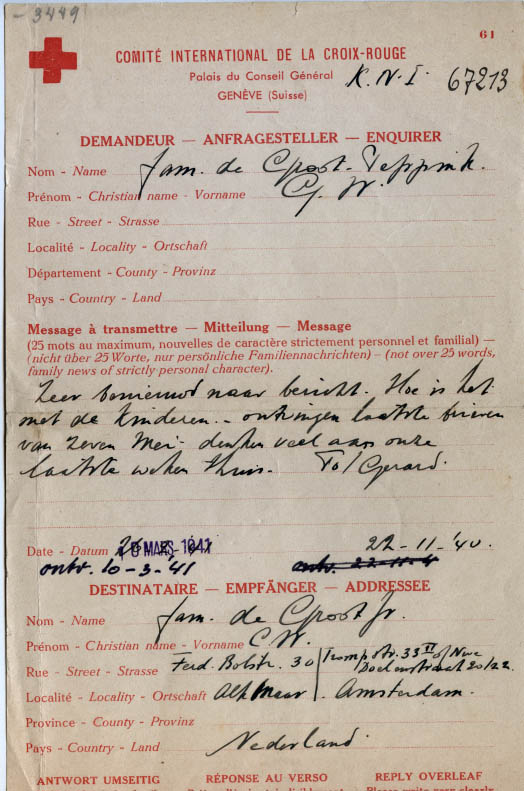 - 3449
61
COMITÉ INTERNATIONAL DE LA CROIX-ROUGE
Palais du Conseil Général
GENÈVE (Suisse)
K.N.I. 67213
DEMANDEUR — ANFRAGESTELLER — ENQUIRER
Nom - Name Fam. de Groot-Teppink.
Prénom - Christian name - Vorname G. W.
Rue - Street - Strasse
Localité - Locality - Ortschaft
Département - County - Provinz
Pays - Country - Land
Message à transmettre — Mitteilung — Message
(25 mots au maximum, nouvelles de caractère strictement personnel et familial) —
(nicht über 25 Worte, nur persönliche Familiennachrichten) – (not over 25 words,
family news of strictly personal character).
Zeer benieuwd naar bericht. Hoe is het
met de Kinderen. - ontvingen laatste brieven
van zeven Mei - denken veel aan onze
laatste weken thuis. - To/Gerard.
Date - Datum 10 MARS 1941 22-11-'40.
ontv. 10-3-'41 ontv. 22-11-4
DESTINATAIRE — EMPFÄNGER — ADDRESSEE
Nom - Name Fam. de Groot Jr.
Prénom - Christian name - Vorname C. W.
Rue - Street - Strasse Ferd. Bolstr. 30 Trompstr. 33 II of Nwe
Doelenstraat 20/22
Localité - Locality - Ortschaft Alkmaar. Amsterdam.
Province - County - Provinz
Pays - Country - Land Nederland.
ANTWORT UMSEITIG RÉPONSE AU VERSO REPLY OVERLEAF